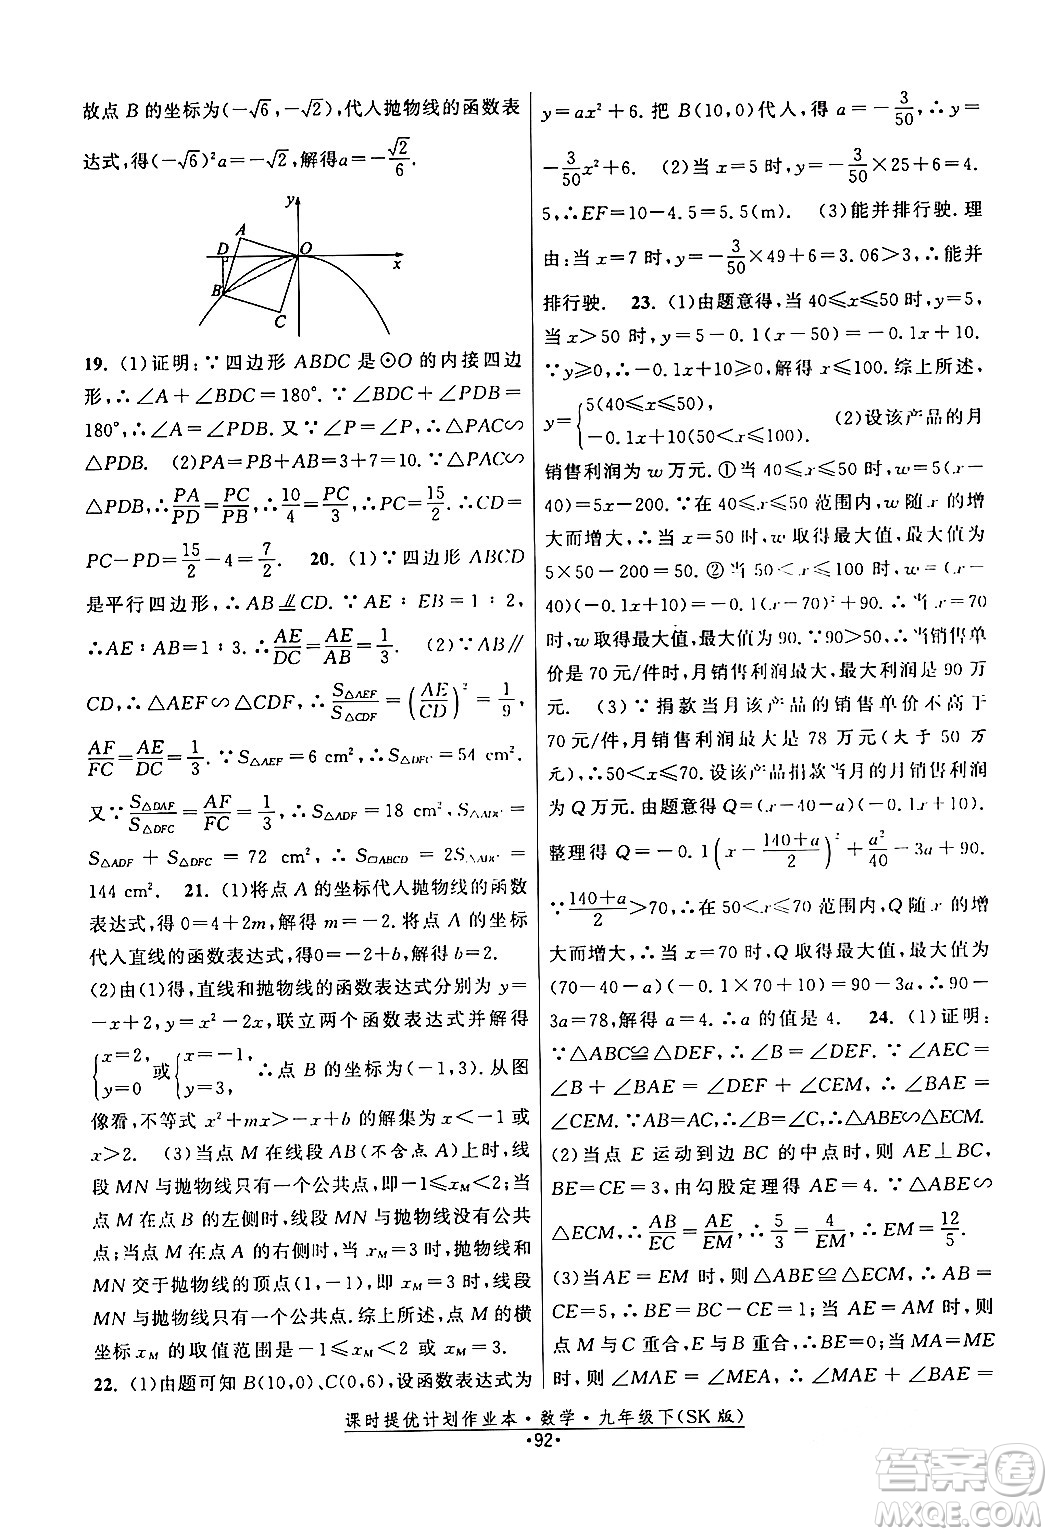 故点 B 的坐标为(-√6,-√2),代人抛物线的函数表
达式,得(-√6)²a=-√2,解得a=-√2/6.
y
D A O x
B
C
19. (1)证明:∵四边形 ABDC 是⊙O 的内接四边
形,∴∠A+∠BDC=180°.∵∠BDC+∠PDB=
180°,∴∠A=∠PDB.又∵∠P=∠P,∴△PAC∽
△PDB. (2)PA=PB+AB=3+7=10.∵△PAC∽
△PDB,∴PA/PD=PC/PB,∴10/4=PC/3,∴PC=15/2.∴CD=
PC-PD=15/2-4=7/2. 20. (1)∵四边形 ABCD
是平行四边形,∴AB∥CD.∵AE∶EB=1∶2,
∴AE∶AB=1∶3.∴AE/DC=AE/AB=1/3. (2)∵AB∥
CD,∴△AEF∽△CDF.∴S△AEF/S△CDF=(AE/CD)²=1/9,
AF/FC=AE/DC=1/3.∵S△AEF=6 cm²,∴S△DFC=54 cm².
又∵S△DAF/S△DFC=AF/FC=1/3,∴S△ADF=18 cm².
S△ADF+S△DFC=72 cm²,∴S▱ABCD=2S
144 cm². 21. (1)将点 A 的坐标代人抛物线的函数
表达式,得 0=4+2m,解得 m=-2.将点 A 的坐标
代人直线的函数表达式,得0=-2+b,解得 b=2.
(2)由(1)得,直线和抛物线的函数表达式分别为 y=
-x+2,y=x²-2x,联立两个函数表达式并解得
{x=2,y=0 或{x=-1,y=3, ∴点 B 的坐标为(-1,3).从图
像看,不等式 x²+mx>-x+b 的解集为 x<-1 或
x>2. (3)当点 M 在线段 AB(不含点 A)上时,线
段 MN 与抛物线只有一个公共点,即-1≤xM<2;当
点 M 在点 B 的左侧时,线段 MN 与抛物线没有公共
点;当点 M 在点 A 的右侧时,当 xM=3 时,线段
MN 交于抛物线的顶点(1,-1),即 xM=3 时,线段
MN 与抛物线只有一个公共点.综上所述,点 M 的横
坐标 xM 的取值范围是-1≤xM<2 或 xM=3.
22. (1)由题可知 B(10,0)、C(0,6),设函数表达式为
y=ax²+6.把 B(10,0)代人,得 a=-3/50,∴y=
-3/50x²+6. (2)当 x=5 时,y=-3/50×25+6=4.
5,∴EF=10-4.5=5.5(m). (3)能并排行驶.理
由:当 x=7 时,y=-3/50×49+6=3.06>3,∴能并
排行驶. 23. (1)由题意得,当 40≤x≤50 时,y=5,
当 x>50 时,y=5-0.1(x-50)=-0.1x+10.
∵y≥0,∴-0.1x+10≥0,∴x≤100.综上所述,
y={5(40≤x≤50),-0.1x+10(50<x≤100). (2)设该产品的月
销售利润为 w 万元.①当 40≤x≤50 时,w=5(x-
40)=5x-200.∵在 40≤x≤50 范围内,w 随 x 的增
大而增大,∴当 x=50 时,w 取得最大值,最大值为
5×50-200=50.②当 50<x≤100 时,w=(x-
40)(-0.1x+10)=-0.1(x-70)²+90.∴当 x=70
时,w 取得最大值,最大值为 90.∵90>50,∴当销售单
价是 70 元/件时,月销售利润最大,最大利润是 90 万
元. (3)∵捐款当月该产品的销售单价不高于
70 元/件,月销售利润最大是 78 万元(大于 50 万
元),∴50<x≤70.设该产品捐款当月的月销售利润
为 Q 万元.由题意得 Q=(x-40-a)(-0.1x+10),
整理得 Q=-0.1(x-(140+a)/2)²+a²/40-3a+90.
∵(140+a)/2>70,∴在 50<x≤70 范围内,Q 随 x 的增
大而增大,∴当 x=70 时,Q 取得最大值,最大值为
(70-40-a)(-0.1×70+10)=90-3a,∴90-
3a=78,解得 a=4.∴a 的值是 4. 24. (1)证明:
∵△ABC≌△DEF,∴∠B=∠DEF.∵∠AEC=
∠B+∠BAE=∠DEF+∠CEM,∴∠BAE=
∠CEM.∵AB=AC,∴∠B=∠C,∴△ABE∽△ECM.
(2)当点 E 运动到边 BC 的中点时,则 AE⊥BC,
BE=EC=3,由勾股定理得 AE=4.∵△ABE∽
△ECM,∴AB/EC=AE/EM,∴5/3=4/EM,∴EM=12/5.
(3)当AE=EM 时,则△ABE≌△ECM,∴AB=
CE=5,∴BE=BC-CE=1;当 AE=AM 时,则
点 M 与 C 重合,E 与 B 重合,∴BE=0;当 MA=ME
时,则∠MAE=∠MEA.∴∠MAE+∠BAE=
课时提优计划作业本·数学·九年级下(SK 版)
·92·
答案卷
MXQE.COM